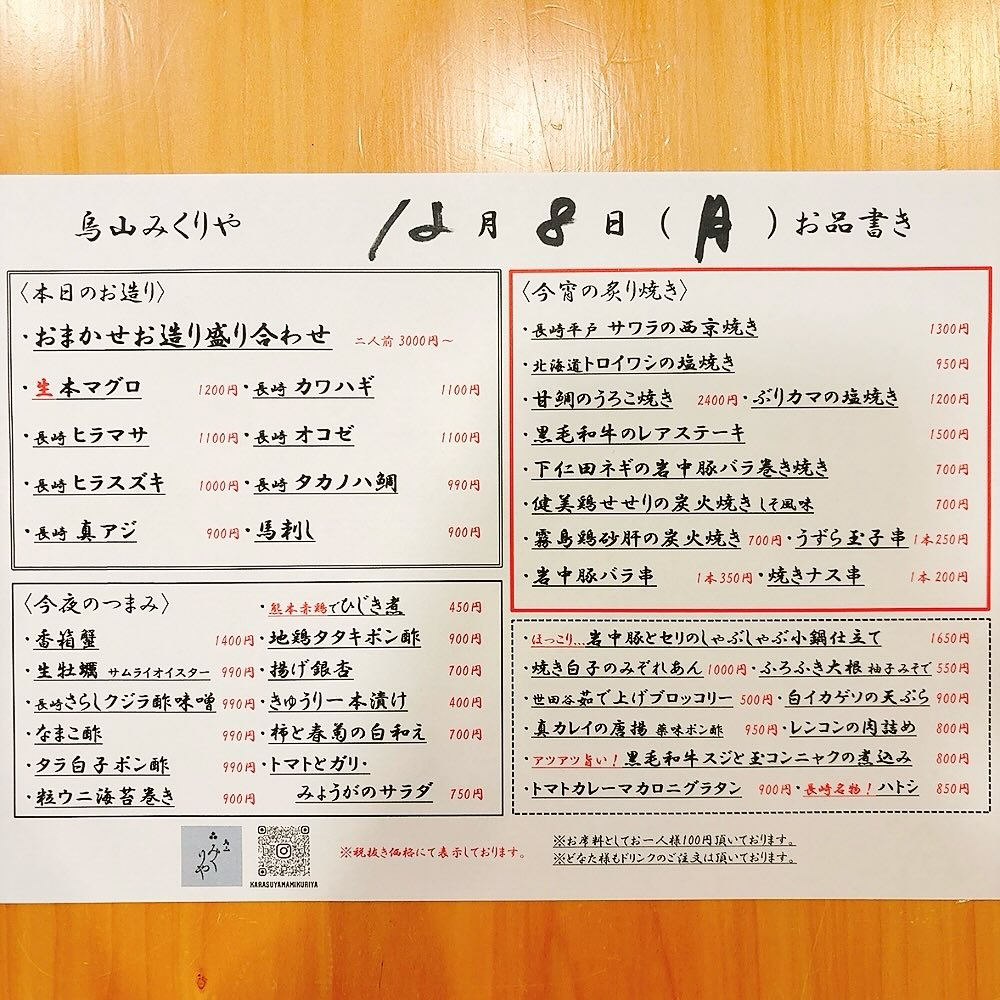 烏山みくりや 12月8日(月)お品書き
〈本日のお造り〉
・おまかせお造り盛り合わせ 二人前 3000円～
・生本マグロ 1200円・長崎 カワハギ 1100円
・長崎 ヒラマサ 1100円・長崎 オコゼ 1100円
・長崎 ヒラスズキ 1000円・長崎 タカノハ鯛 990円
・長崎 真アジ 900円・馬刺し 900円
〈今夜のつまみ〉 ・熊本赤鶏でひじき煮 450円
・香箱蟹 1400円・地鶏タタキポン酢 900円
・生牡蠣 サムライオイスター 990円・揚げ銀杏 700円
・長崎さらしクジラ酢味噌 990円・きゅうり一本漬け 400円
・なまこ酢 990円・柿と春菊の白和え 700円
・タラ白子ポン酢 990円・トマトとガリ・
・粒ウニ海苔巻き 900円 みょうがのサラダ 750円
〈今宵の炙り焼き〉
・長崎平戸 サワラの西京焼き 1300円
・北海道トロイワシの塩焼き 950円
・甘鯛のうろこ焼き 2400円・ぶりカマの塩焼き 1200円
・黒毛和牛のレアステーキ 1500円
・下仁田ネギの岩中豚バラ巻き焼き 700円
・健美鶏せせりの炭火焼き しそ風味 700円
・霧島鶏砂肝の炭火焼き 700円・うずら玉子串 1本250円
・岩中豚バラ串 1本350円・焼きナス串 1本200円
・ほっこり…岩中豚とセリのしゃぶしゃぶ小鍋仕立て 1650円
・焼き白子のみぞれあん 1000円・ふろふき大根 柚子みそで 550円
・世田谷茹で上げブロッコリー 500円・白イカゲソの天ぷら 900円
・真カレイの唐揚 薬味ポン酢 950円・レンコンの肉詰め 800円
・アツアツ旨い！黒毛和牛スジと玉コンニャクの煮込み 800円
・トマトカレーマカロニグラタン 900円・長崎名物！ハトシ 850円
烏山
みく
りや
KARASUYAMAMIKURIYA
※税抜き価格にて表示しております。
※お席料としてお一人様100円頂いております。
※どなた様もドリンクのご注文は頂いております。